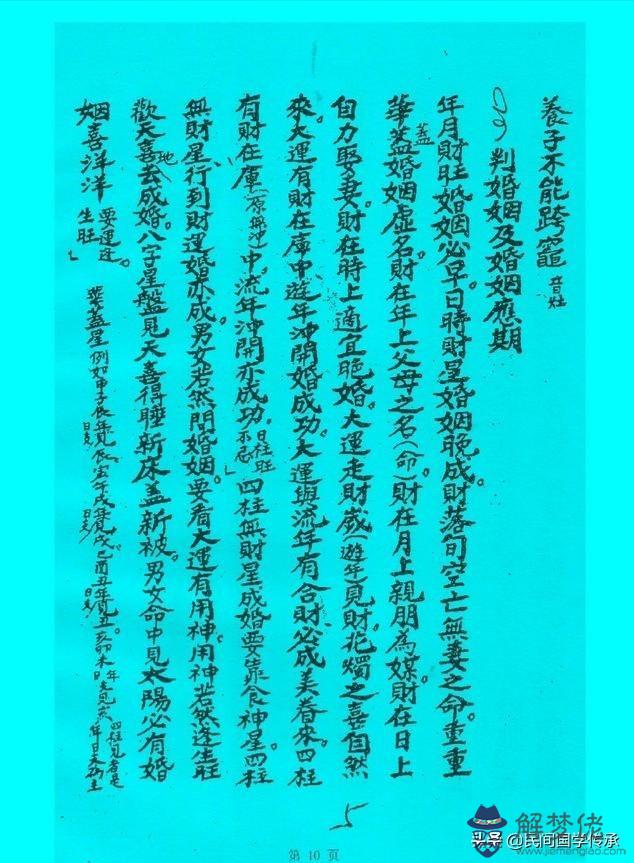 養子不能跨竈 音灶
判婚姻及婚姻應期
年月財旺婚姻必早日時財星婚姻晚成財落旬空亡無妻之命。重重
華蓋婚姻虛名。財在年上父母之名(命)財在月上親朋為媒。財在日上
蓋
自力娶妻。財在時上適宜晚婚。大運走財歲(遊年)見財。花燭之喜自然
來。大運有財在庫中遊年沖開婚成功。大運與流年有合財必成美眷來。四柱
有財在庫(原無沖)中。流年沖開亦成功。日柱旺不忌 四柱無財星成婚要靠食神星。四柱
無財星行到財運婚亦成。男女若然問婚姻。要看大運有用神。用神若然逢生旺
歡天喜去成婚。八字星盤見天喜得睡新床蓋新被。男女命中見太陽必有婚
地
姻喜洋洋 要運逢生旺。
華蓋星例如申子辰年見辰。寅午戌年見戌。巳酉丑年見丑。亥卯未年
日支
5
第 10 页
解梦佬
www.jiemenglao.com
头条 @民间国学传承